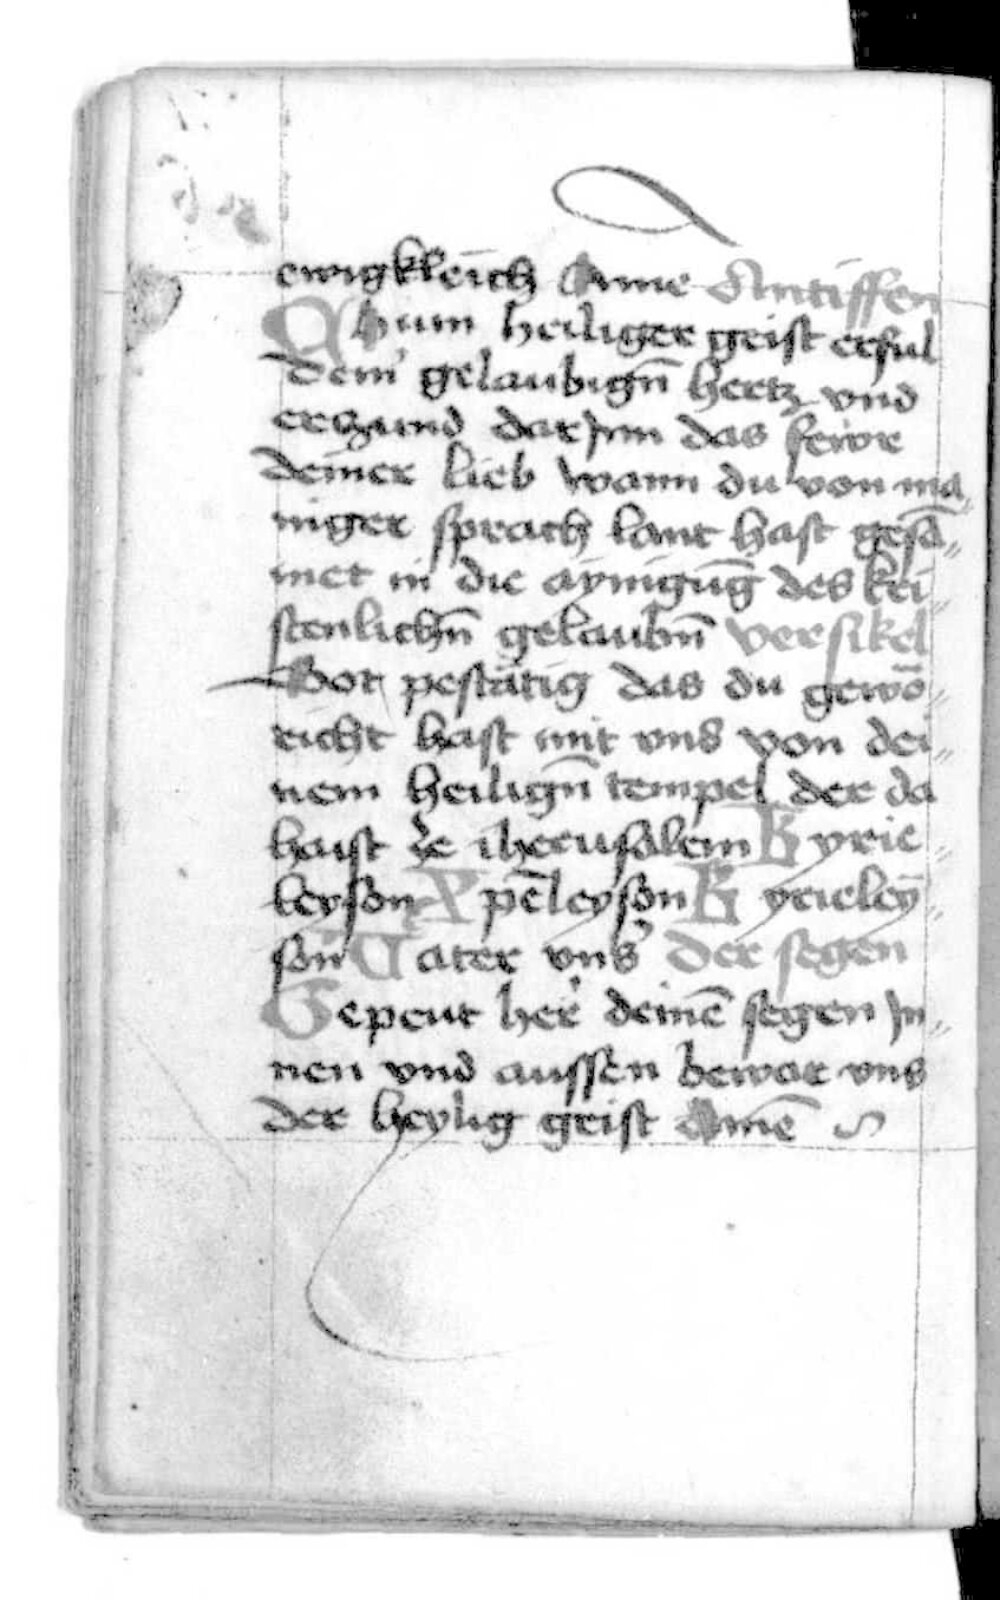 ewigkleich Amē Antiffen
Chum heiliger geist erful
dein̄ gelaubign̄ hertz vnd
erczund darJnn das fewr
deiner lieb wann du von ma„
niger sprach laut hast gesā„
met in die aynigūg des kri„
stenlichn̄ gelaubm̄ versikel
Got pestätig das du gewō„
richt hast mit vns von dei„
nem heilign̄ tempel der da
haist ze iherusalem Kyrie
leyson Xpēleyson Kyrieley„
son Uater vns̄ der segen
Gepeut her deinē segen Jn„
nen vnd aussen bewar vns
der heylig geist Amē